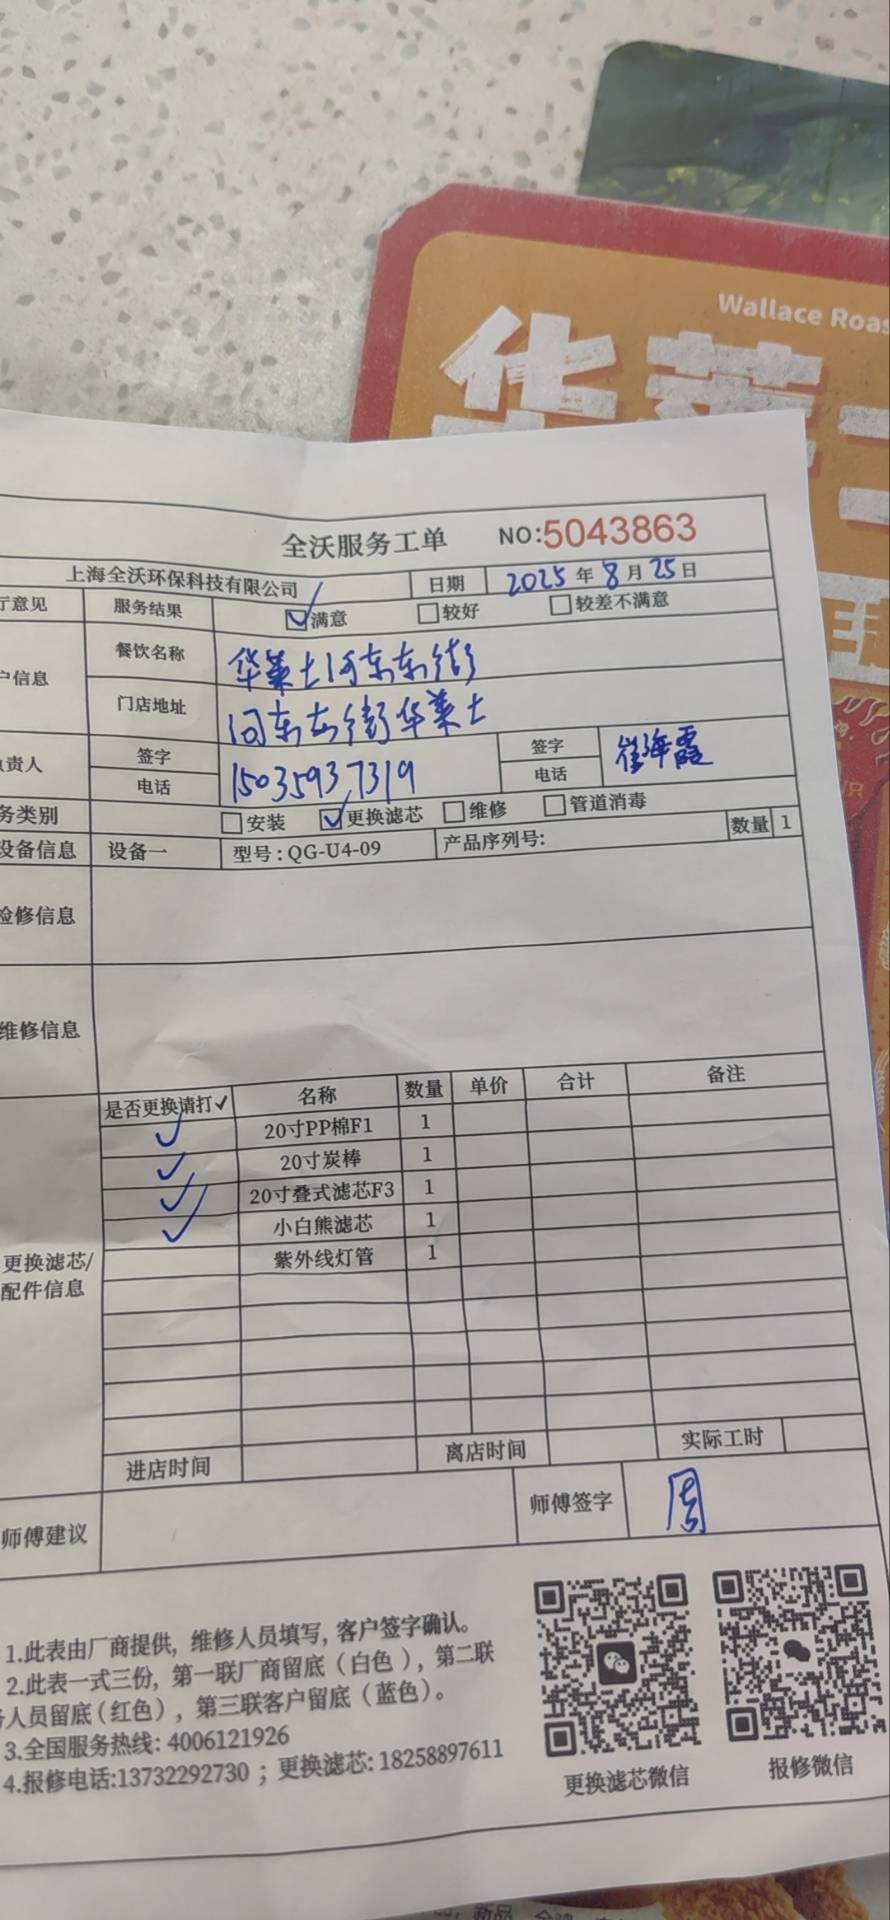 Wallace Roas
华莱士
全沃服务工单 NO:5043863
上海全沃环保科技有限公司 日期 2025年8月25日
厅意见 服务结果 ☑满意 ☐较好 ☐较差不满意
户信息 餐饮名称 华莱士河东东街
门店地址 河东东街华莱士
负责人 签字 签字 崔海霞
电话 15035937319 电话
务类别 ☐安装 ☑更换滤芯 ☐维修 ☐管道消毒
设备信息 设备一 型号:QG-U4-09 产品序列号: 数量 1
检修信息
维修信息
是否更换请打✓ 名称 数量 单价 合计 备注
✓ 20寸PP棉F1 1
✓ 20寸炭棒 1
✓ 20寸叠式滤芯F3 1
✓ 小白熊滤芯 1
紫外线灯管 1
更换滤芯/
配件信息
进店时间 离店时间 实际工时
师傅建议 师傅签字 周
1.此表由厂商提供,维修人员填写,客户签字确认。
2.此表一式三份,第一联厂商留底(白色),第二联
务人员留底(红色),第三联客户留底(蓝色)。
3.全国服务热线:4006121926
4.报修电话:13732292730 ; 更换滤芯:18258897611
更换滤芯微信 报修微信
新品